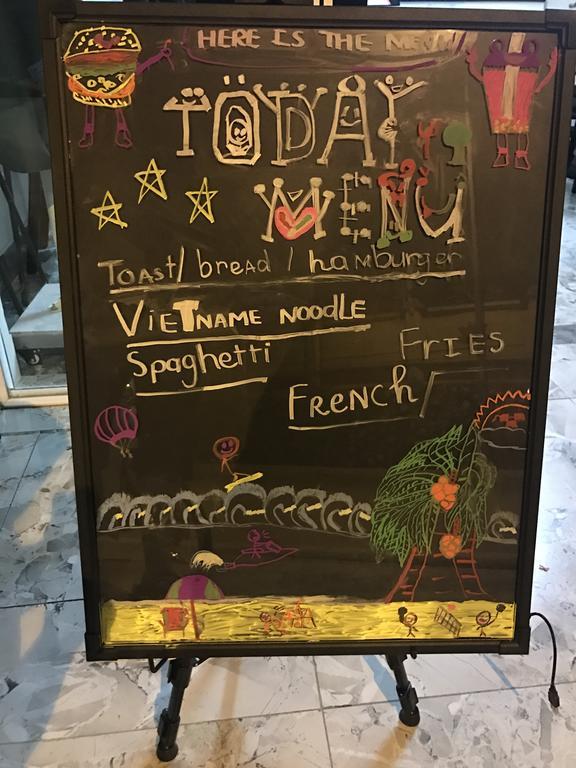 HERE IS THE MENU
TODAY
MENU
TOAST / breAD / hamburger
VIETNAME NOODLE
Spaghetti
FRIES
FRENCh /